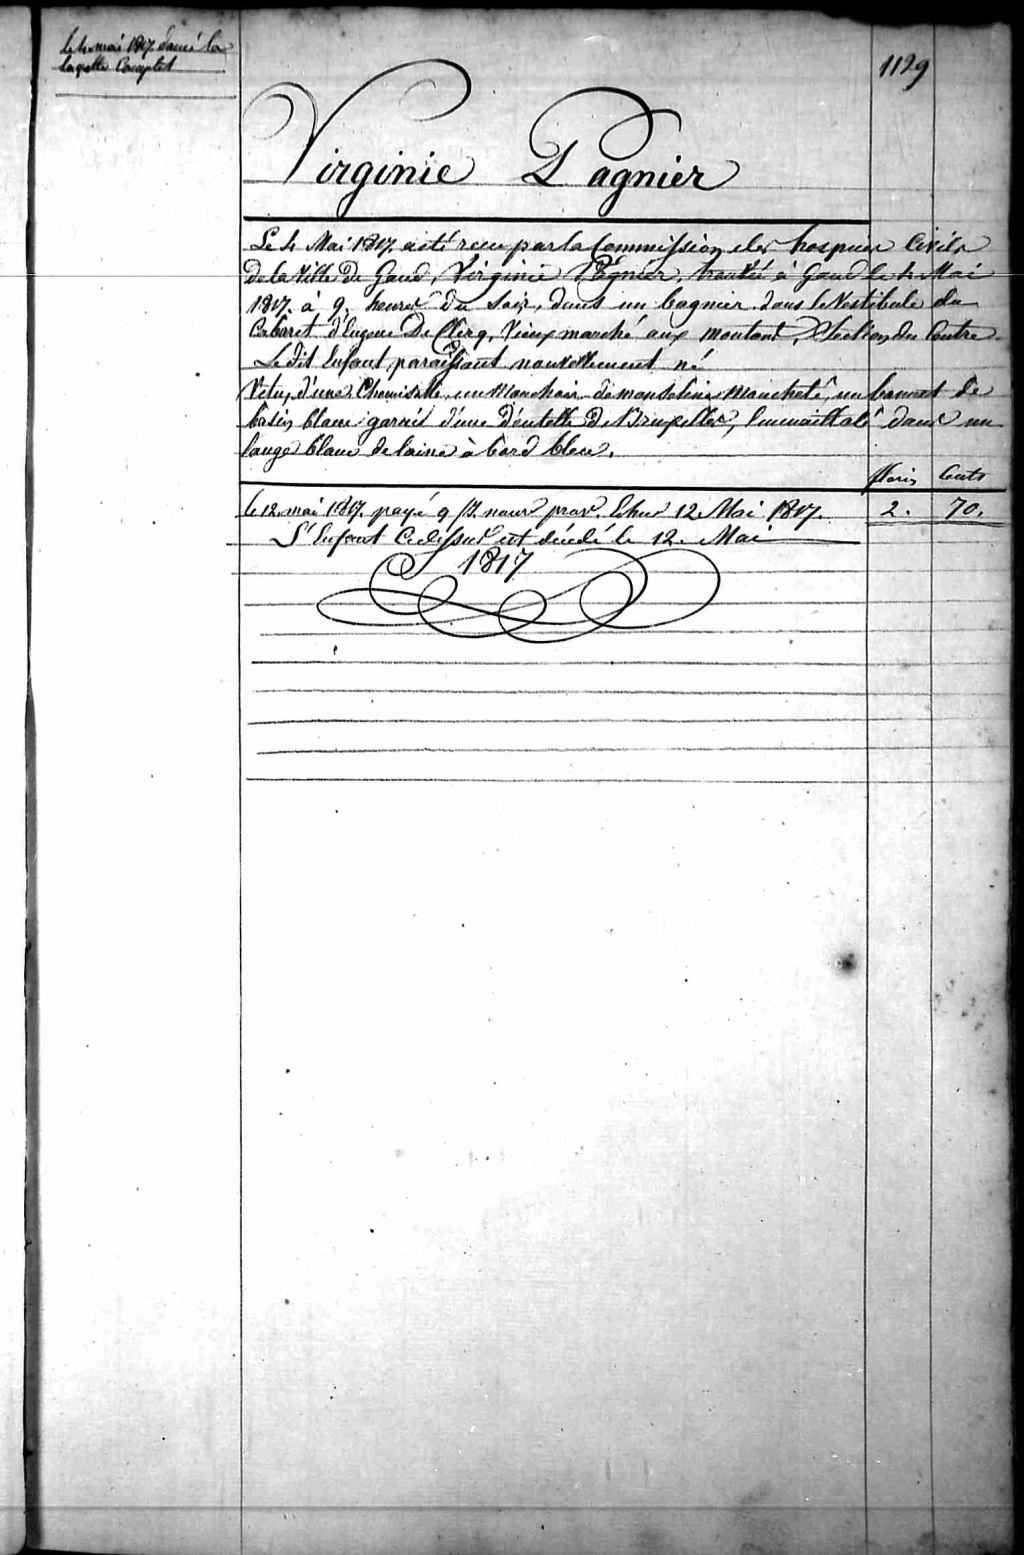 le 4 mai 1817 donné la
layette Complet
1129
Virginie Pagnier
Le 4 Mai 1817 a été recu par la Commission des hospices Civils
de la Ville de Gand, Virginie Pagnier, trouvée à Gand le 4 Mai
1817. à 9. heures du Soir, dans un bagnier dans le Vestibule du
Cabaret d'Eugene De Clerq, Vieux marché aux moutont, Section du Centre
Le dit Enfant, paraissant nouvellement né
Vetu, d'une Chemisette, un Mouchoir de mousseline Moucheté, un bonnet de
basin blanc garnit d'une Dentelle de Bruxelles, Emmaillolé dans un
lange blanc de laine à bord bleu.
floris Cents
le 12 mai 1817. payé 9 nour prov. Echu 12 Mai 1817. 2. 70.
L'Enfant Cidessus est décédé le 12. Mai
1817